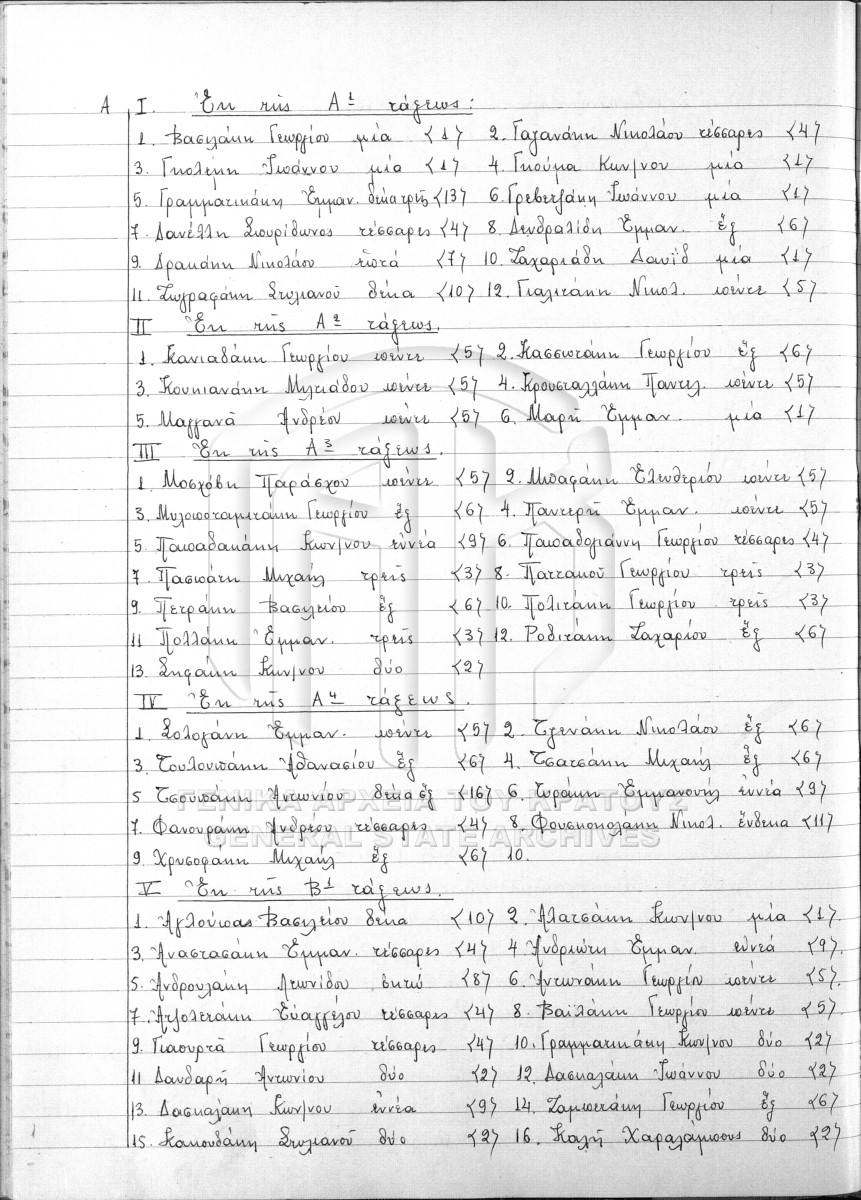 Α Ι. Ἐκ τῆς Α1 τάξεως:
1. Βασιλάκη Γεωργίου μία <1> 2. Γαζανάκη Νικολάου τέσσαρες <4>
3. Γκολέμη Ἰωάννου μία <1> 4. Γκούμα Κων/νου μία <1>
5. Γραμματικάκη Ἐμμαν. δεκατρεῖς <13> 6. Γρεβετζάκη Ἰωάννου μία <1>
7. Δανέλλη Σπυρίδωνος τέσσαρες <4> 8. Δενδραλίδη Ἐμμαν. ἕξ <6>
9. Δρακάκη Νικολάου ἑπτά <7> 10. Ζαχαριάδη Δαυΐδ μία <1>
11. Ζωγραφάκη Στυλιανοῦ δέκα <10> 12. Γιαλιτάκη Νικολ. πέντε <5>
ΙΙ Ἐκ τῆς Α2 τάξεως.
1. Κανιαδάκη Γεωργίου πέντε <5> 2. Κασσωτάκη Γεωργίου ἕξ <6>
3. Κουκιανάκη Μιλτιάδου πέντε <5> 4. Κρουσταλλάκη Παντελ. πέντε <5>
5. Μαγγανᾶ Ἀνδρέου πέντε <5> 6. Μαρῆ Ἐμμαν. μία <1>
ΙΙΙ Ἐκ τῆς Α3 τάξεως.
1. Μοσχόβη Παράσχου πέντε <5> 2. Μπαζάκη Ἐλευθερίου πέντε <5>
3. Μυλοποταμιτάκη Γεωργίου ἕξ <6> 4. Παντερῆ Ἐμμαν. πέντε <5>
5. Παπαδακάκη Κων/νου ἐννέα <9> 6. Παπαδογιάννη Γεωργίου τέσσαρες <4>
7. Πασπάτη Μιχαήλ τρεῖς <3> 8. Παττακοῦ Γεωργίου τρεῖς <3>
9. Πετράκη Βασιλείου ἕξ <6> 10. Πολιτάκη Γεωργίου τρεῖς <3>
11 Πολλάκη Ἐμμαν. τρεῖς <3> 12. Ροδιτάκη Ζαχαρίου ἕξ <6>
13. Σηφάκη Κων/νου δύο <2>
IV Ἐκ τῆς Α4 τάξεως.
1. Σολοζάνη Ἐμμαν. πέντε <5> 2. Τζενάκη Νικολάου ἕξ <6>
3. Τουλουπάκη Ἀθανασίου ἕξ <6> 4. Τσατσάκη Μιχαήλ ἕξ <6>
5 Τσουπάκη Ἀντωνίου δεκαέξ <16> 6. Τωράκη Ἐμμανουήλ ἐννέα <9>
ΓΕΝΙΚΑ ΑΡΧΕΙΑ ΤΟΥ ΚΡΑΤΟΥΣ
7. Φανουράκη Ἀνδρέου τέσσαρες <4> 8. Φουσκοκολάκη Νικολ. ἕνδεκα <11>
GENERAL STATE ARCHIVES
9. Χρυσοφάκη Μιχαήλ ἕξ <6> 10.
V Ἐκ τῆς Β1 τάξεως.
1. Ἀγλούπας Βασιλείου δέκα <10> 2. Ἀλατσάκη Κων/νου μία <1>.
3. Ἀναστασάκη Ἐμμαν. τέσσαρες <4> 4 Ἀνδριώτη Ἐμμαν. ἐννεά <9>.
5. Ἀνδρουλάκη Λεωνίδου ὀκτώ <8> 6. Ἀντωνάκη Γεωργίου πέντε <5>.
7. Ἀτζολετάκη Εὐαγγέλου τέσσαρες <4> 8. Βαϊλάκη Γεωργίου πέντε <5>.
9. Γιαουρτᾶ Γεωργίου τέσσαρες <4> 10. Γραμματικάκη Κων/νου δύο <2>
11 Δανδαρῆ Ἀντωνίου δύο <2> 12. Δασκαλάκη Ἰωάννου δύο <2>
13. Δασκαλάκη Κων/νου ἐννέα <9> 14. Ζαμπετάκη Γεωργίου ἕξ <6>
15. Κακουδάκη Στυλιανοῦ δύο <2> 16. Καλῆ Χαραλάμπους δύο <2>